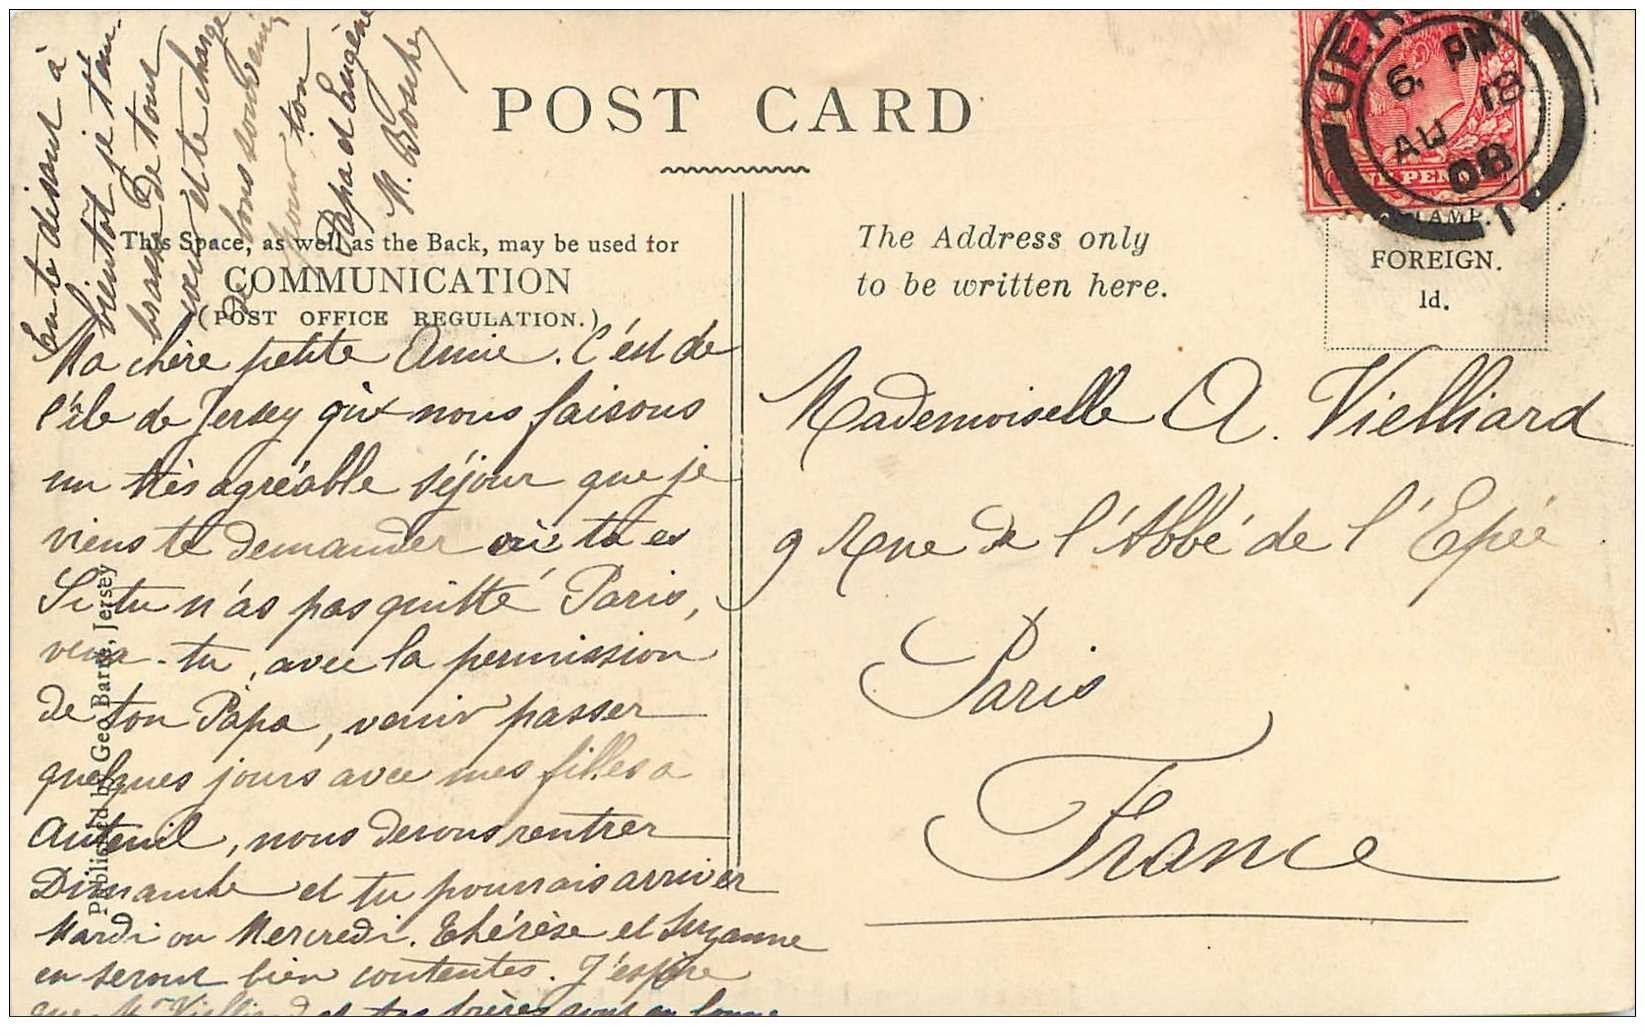 POST CARD
This Space, as well as the Back, may be used for
COMMUNICATION
(POST OFFICE REGULATION.)
The Address only
to be written here.
STAMP.
FOREIGN.
1d.
JERSEY
6. PM
AU 18
08
1
PENNY
Ma chère petite Amie. C'est de
l'île de Jersey où nous faisons
un très agréable séjour que je
viens te demander où tu es
Si tu n'as pas quitté Paris,
veux-tu, avec la permission
de ton Papa, venir passer
quelques jours avec mes filles a
Auteuil, nous devons rentrer
Dimanche et tu pourrais arriver
Mardi ou Mercredi. Thérèse et Suzanne
en seront bien contentes. J'espère
que Mr Vielliard et tes frères sont en bonne
En te disant à
bientôt je t'em-
brasse de tout
et te charge
de bons souvenirs
pour ton
Papa et Eugène
M.
Mademoiselle A. Vielliard
9 Rue de l'Abbé de l'Epée
Paris
France
Published by Geo. Barre, Jersey